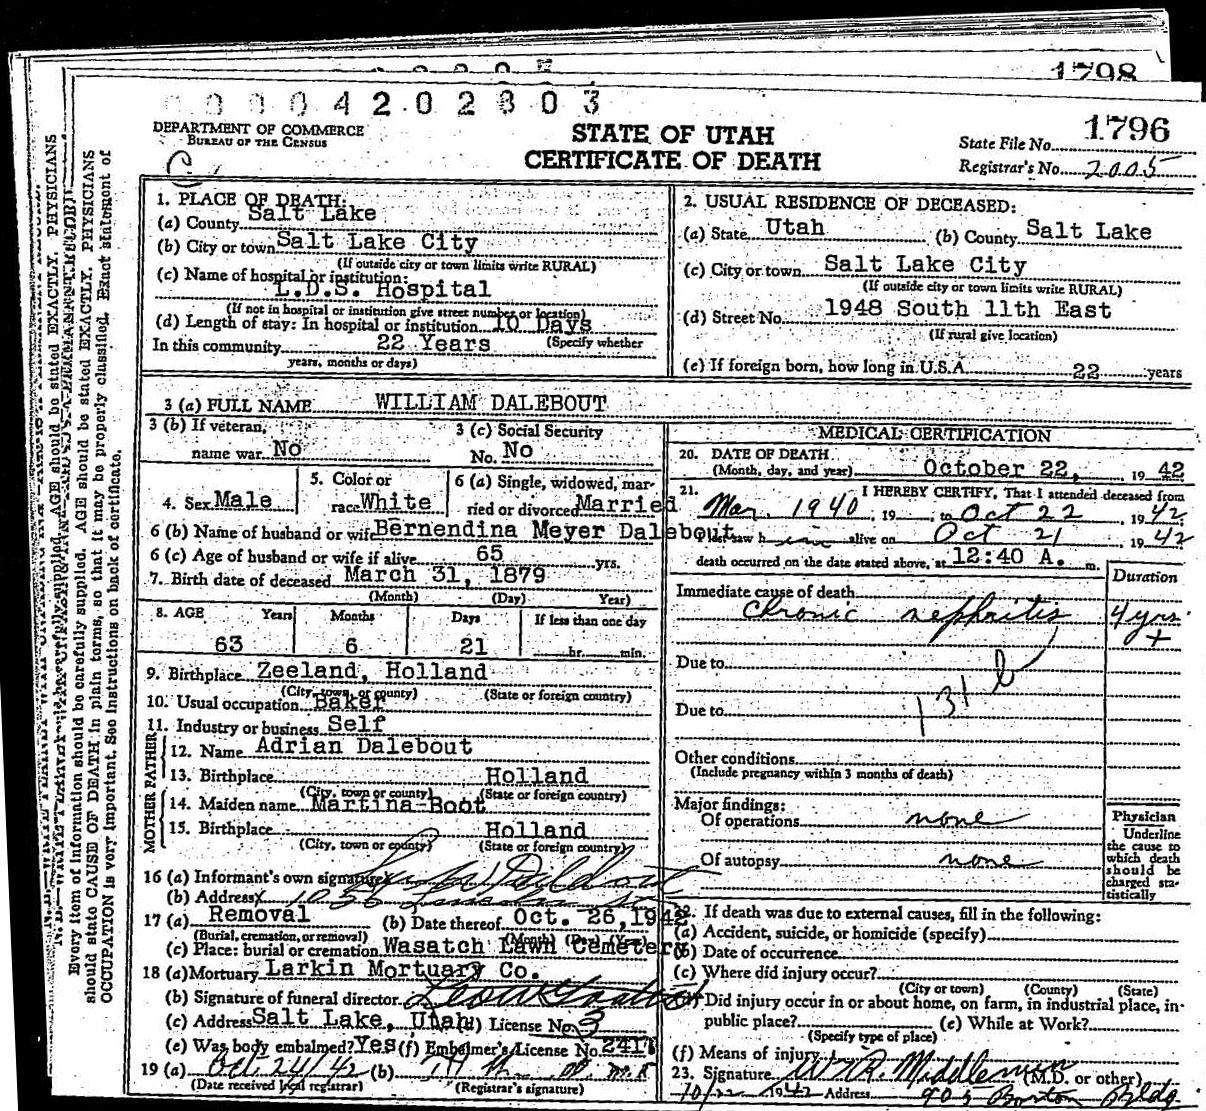 1798
0 0 0 0 4 2 0 2 8 0 3
DEPARTMENT OF COMMERCE
BUREAU OF THE CENSUS
STATE OF UTAH
CERTIFICATE OF DEATH
State File No. 1796
Registrar's No. 2005
1. PLACE OF DEATH:
(a) County Salt Lake
(b) City or town Salt Lake City
(If outside city or town limits write RURAL)
(c) Name of hospital or institution:
L.D.S. Hospital
(If not in hospital or institution give street number or location)
(d) Length of stay: In hospital or institution 10 Days
In this community 22 Years (Specify whether
years, months or days)
2. USUAL RESIDENCE OF DECEASED:
(a) State Utah (b) County Salt Lake
(c) City or town Salt Lake City
(If outside city or town limits write RURAL)
(d) Street No. 1948 South 11th East
(If rural give location)
(e) If foreign born, how long in U.S.A. 22 years
3 (a) FULL NAME WILLIAM DALEBOUT
3 (b) If veteran, name war No
3 (c) Social Security No. No
4. Sex Male
5. Color or race White
6 (a) Single, widowed, married or divorced Married
6 (b) Name of husband or wife Bernendina Meyer Dalebout
6 (c) Age of husband or wife if alive 65 yrs.
7. Birth date of deceased March 31, 1879
(Month) (Day) Year)
8. AGE Years Months Days If less than one day
63 6 21 hr. min.
9. Birthplace Zeeland, Holland
(City, town, or county) (State or foreign country)
10. Usual occupation Baker
11. Industry or business Self
FATHER
12. Name Adrian Dalebout
13. Birthplace Holland
(City, town or county) (State or foreign country)
MOTHER
14. Maiden name Martina Boot
15. Birthplace Holland
(City, town or county) (State or foreign country)
16 (a) Informant's own signature
(b) Address 1056
17 (a) Removal (b) Date thereof Oct. 26, 1942
(Burial, cremation, or removal) (Month) (Day) (Year)
(c) Place: burial or cremation Wasatch Lawn Cemetery
18 (a) Mortuary Larkin Mortuary Co.
(b) Signature of funeral director
(c) Address Salt Lake, Utah (d) License No. 3
(e) Was body embalmed? Yes (f) Embalmer's License No. 241
19 (a) Oct 24/42 (b)
(Date received local registrar) (Registrar's signature)
MEDICAL CERTIFICATION
20. DATE OF DEATH
(Month, day, and year) October 22, 19 42
21. I HEREBY CERTIFY, That I attended deceased from
Mar. 1940, 19 , to Oct 22 1942
I last saw him alive on Oct 21 1942
death occurred on the date stated above, at 12:40 A. m.
Duration
Immediate cause of death
chronic nephritis 4 yrs +
Due to
131 b
Due to
Other conditions
(Include pregnancy within 3 months of death)
Major findings:
Of operations none
Of autopsy none
Physician
Underline
the cause to
which death
should be
charged sta-
tistically
22. If death was due to external causes, fill in the following:
(a) Accident, suicide, or homicide (specify)
(b) Date of occurrence
(c) Where did injury occur?
(City or town) (County) (State)
(d) Did injury occur in or about home, on farm, in industrial place, in-
public place? (e) While at Work?
(Specify type of place)
(f) Means of injury
23. Signature W R. Middlemon (M.D. or other)
10/22 1942 Address 905 Boston Bldg.
Every item of information should be carefully supplied. AGE should be stated EXACTLY. PHYSICIANS
should state CAUSE OF DEATH in plain terms, so that it may be properly classified. Exact statement of
OCCUPATION is very important. See instructions on back of certificate.